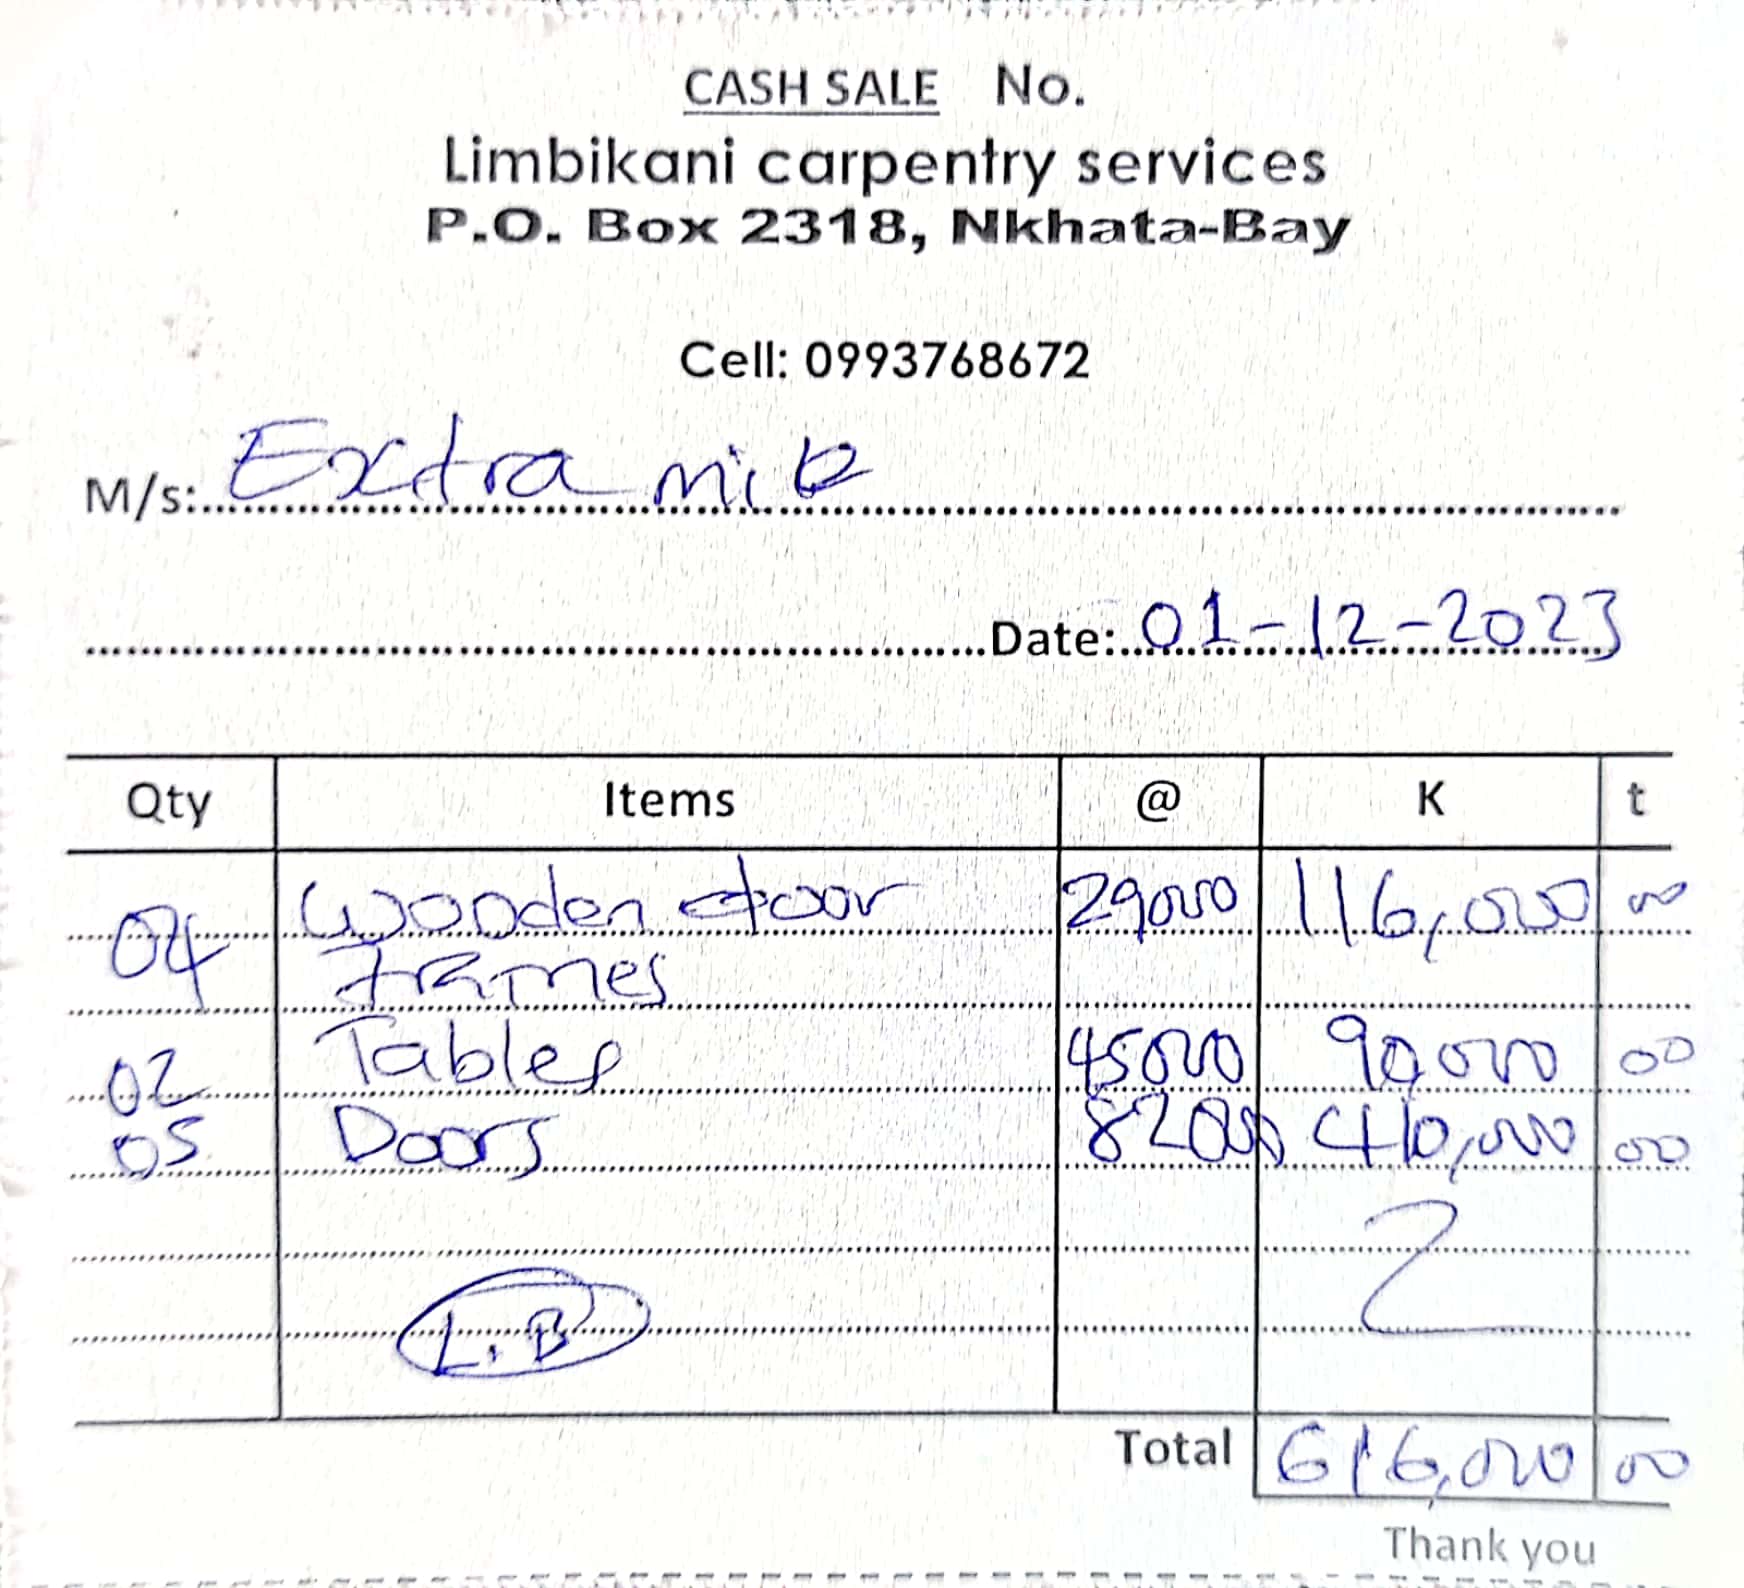 CASH SALE No.
Limbikani carpentry services
P.O. Box 2318, Nkhata-Bay
Cell: 0993768672
M/s: Extra
Date: 01-12-2023
Qty Items @ K t
04 Wooden door 29000 116,000 00
Frames
02 Tables 45000 90,000 00
05 Doors 82000 410,000 00
L.B
Total 616,000 00
Thank you